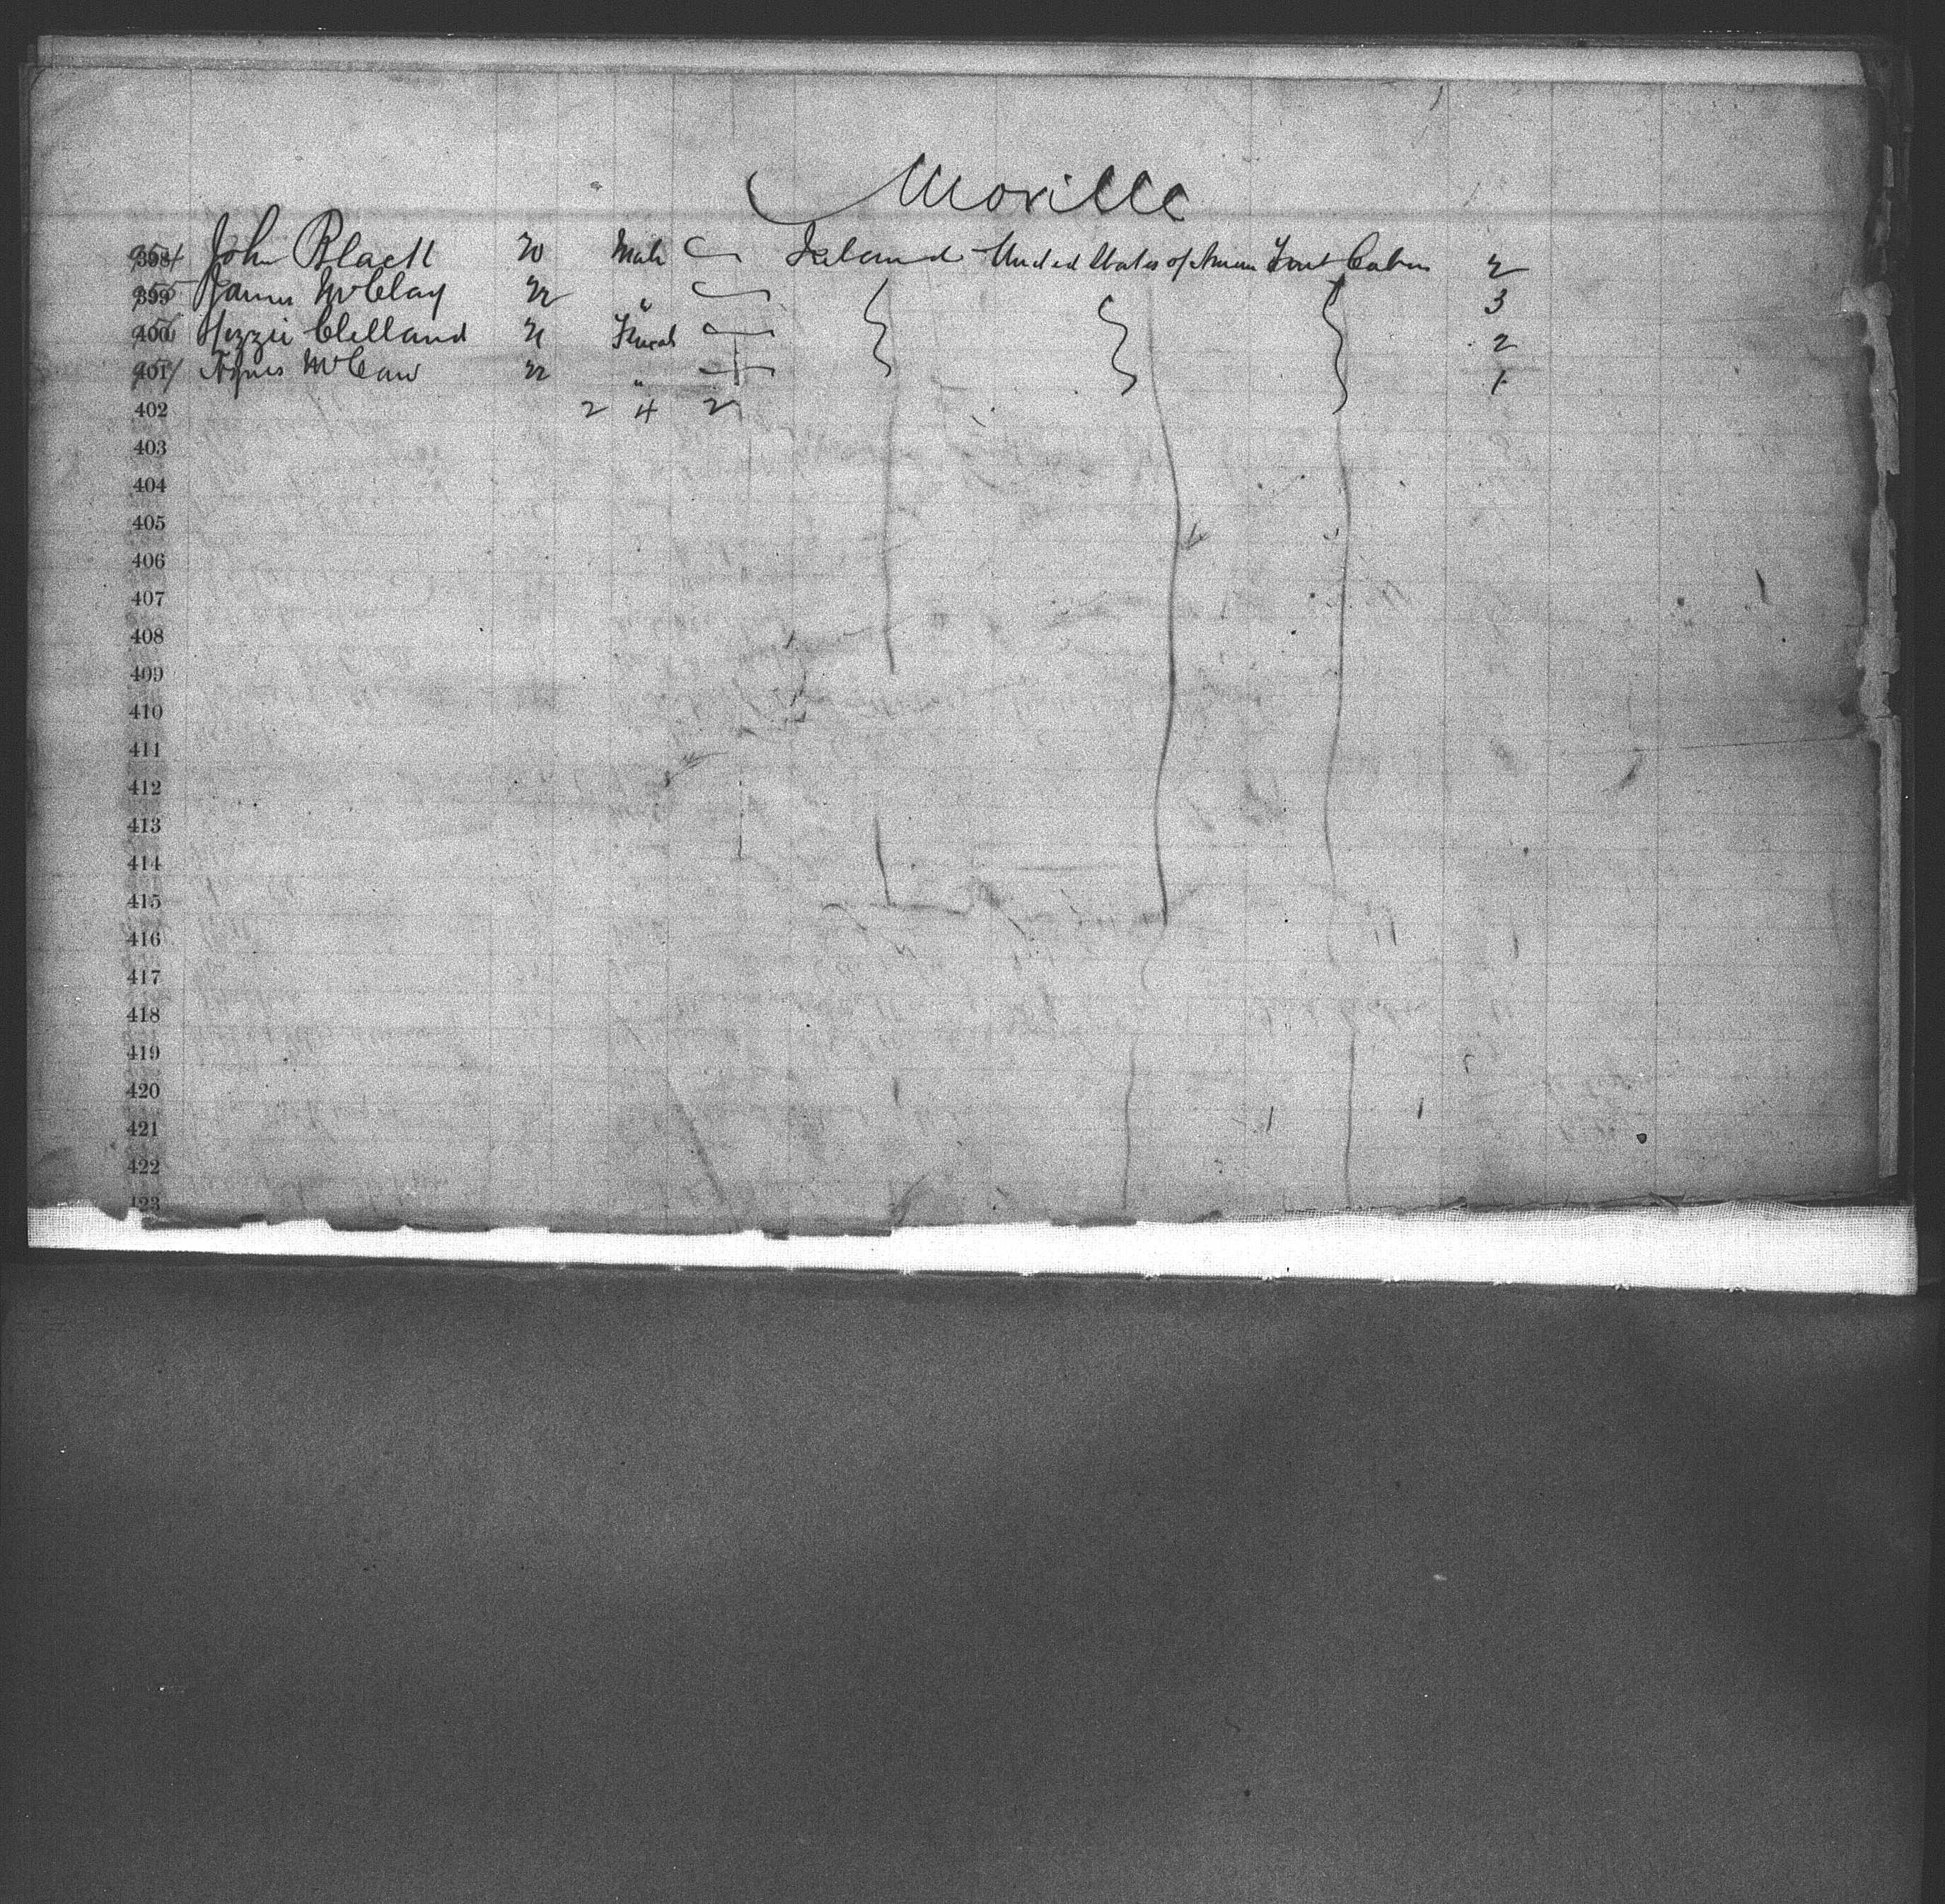 Moville
John Black 20 Male Ireland United States of Amer Cabin 2
James McClay 22 " 3
Lizzie Clelland 21 Female 2
Agnes McCaw 22 " 1
402 2 4 2
403
404
405
406
407
408
409
410
411
412
413
414
415
416
417
418
419
420
421
422
423